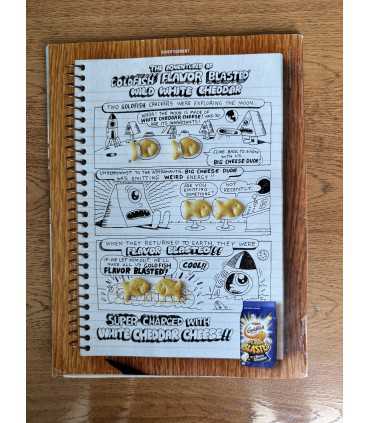 ADVERTISEMENT
THE ADVENTURES OF
GOLDFISH FLAVOR BLASTED
WILD WHITE CHEDDAR
TWO GOLDFISH CRACKERS WERE EXPLORING THE MOON...
WOW! THE MOON IS MADE OF
WHITE CHEDDAR CHEESE!
AND
ITS INHABITANTS!
COME BACK TO EARTH
WITH US,
BIG CHEESE DUDE!
UNBEKNOWNST TO THE ASTRONAUTS, BIG CHEESE DUDE
WAS EMITTING WEIRD ENERGY!!
ARE YOU
EMITTING
SOMETHING?
NOT
RECENTLY!
WHEN THEY RETURNED TO EARTH, THEY WERE
FLAVOR BLASTED!!
IF WE LET HIM OUT, HE'LL
MAKE ALL US GOLDFISH
FLAVOR BLASTED!
COOL!!
SUPER-CHARGED WITH
WHITE CHEDDAR CHEESE!!
Goldfish
FLAVOR
BLASTED